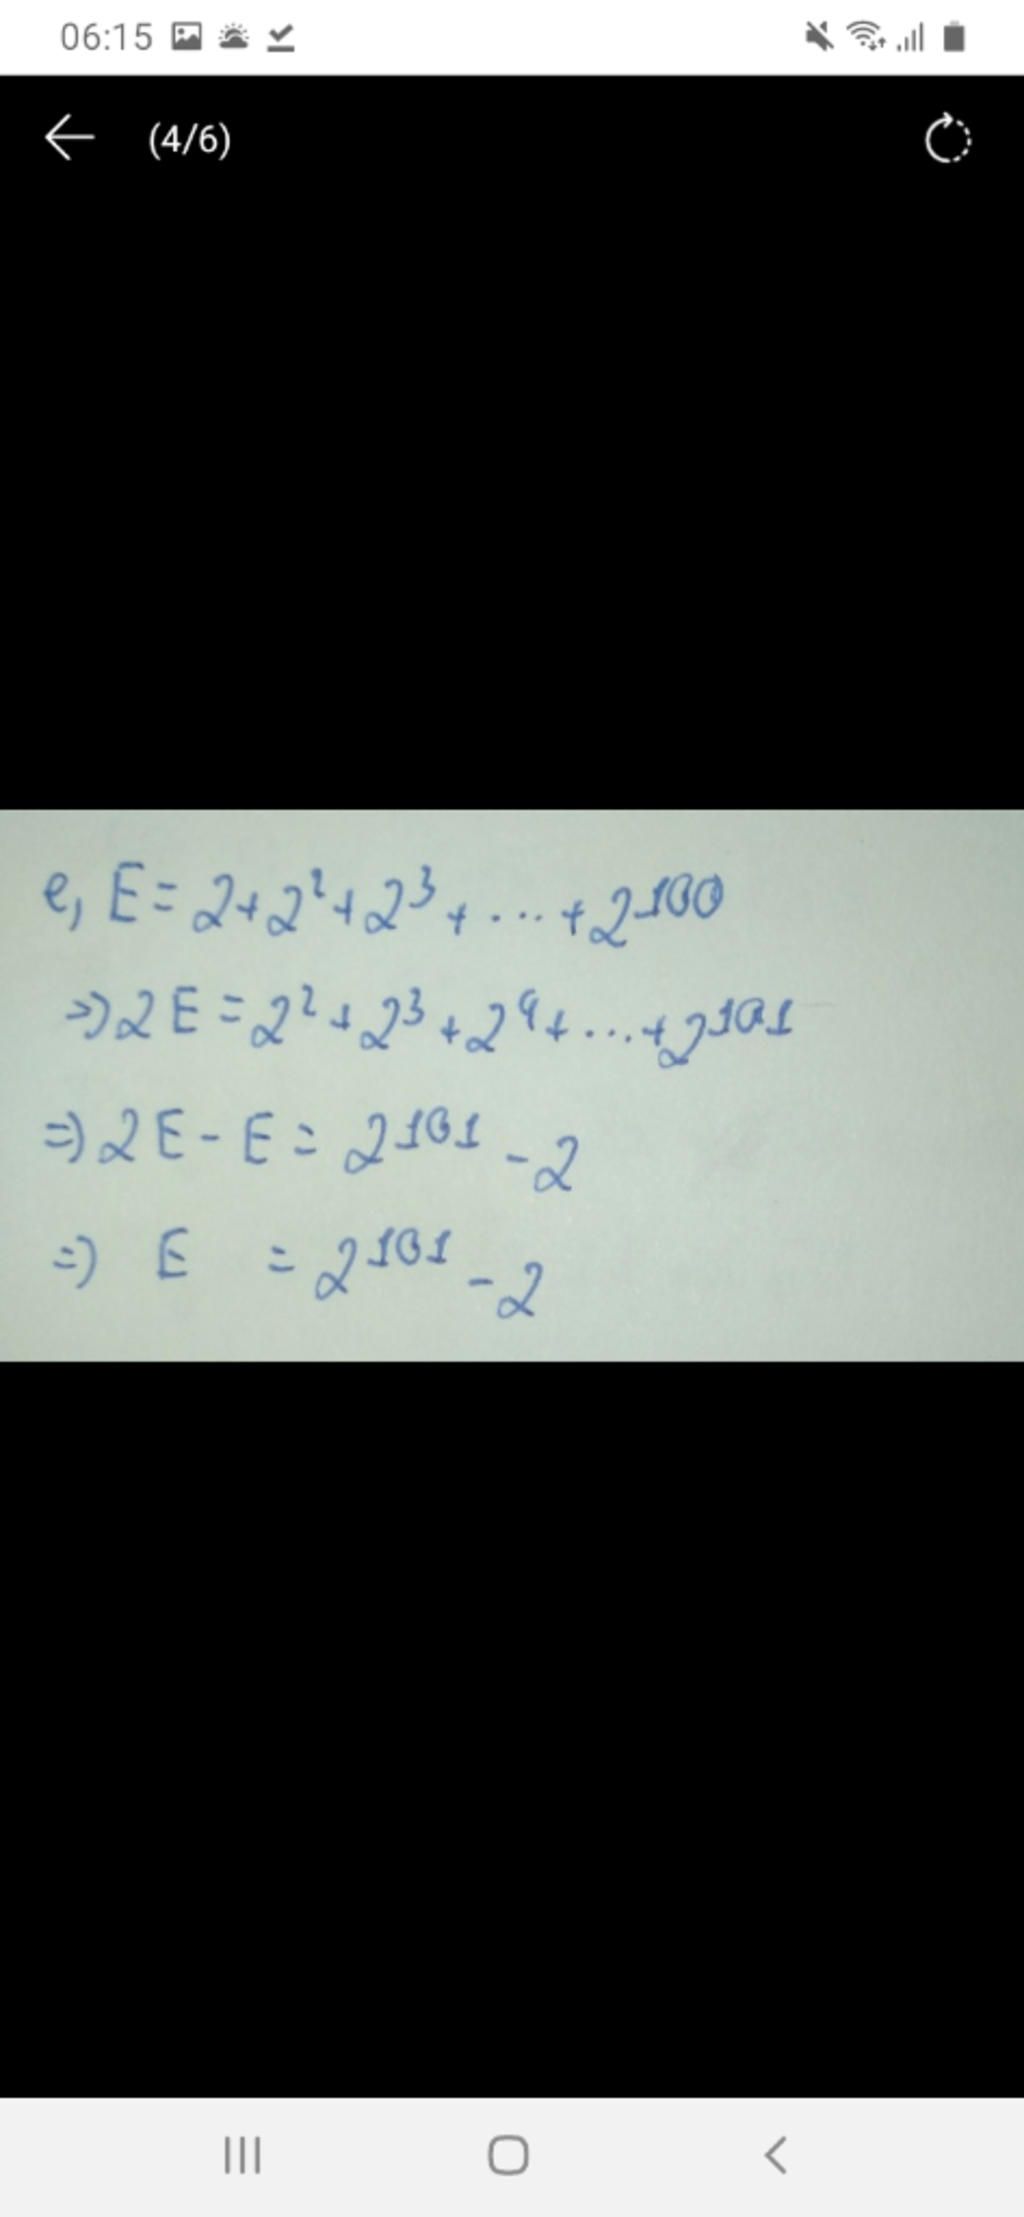 06:15
(4/6)
e, E = 2 + 2² + 2³ + ... + 2¹⁰⁰
=> 2E = 2² + 2³ + 2⁴ + ... + 2¹⁰¹
=> 2E - E = 2¹⁰¹ - 2
=> E = 2¹⁰¹ - 2